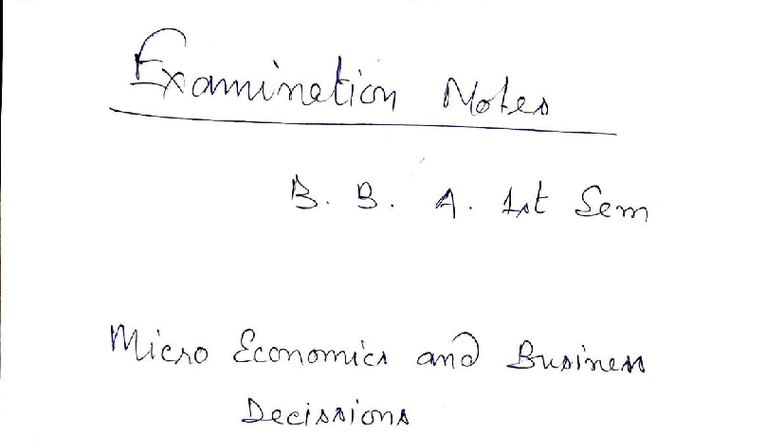 Examination Notes
B. B. A. 1st Sem
Micro Economics and Business
Decissions